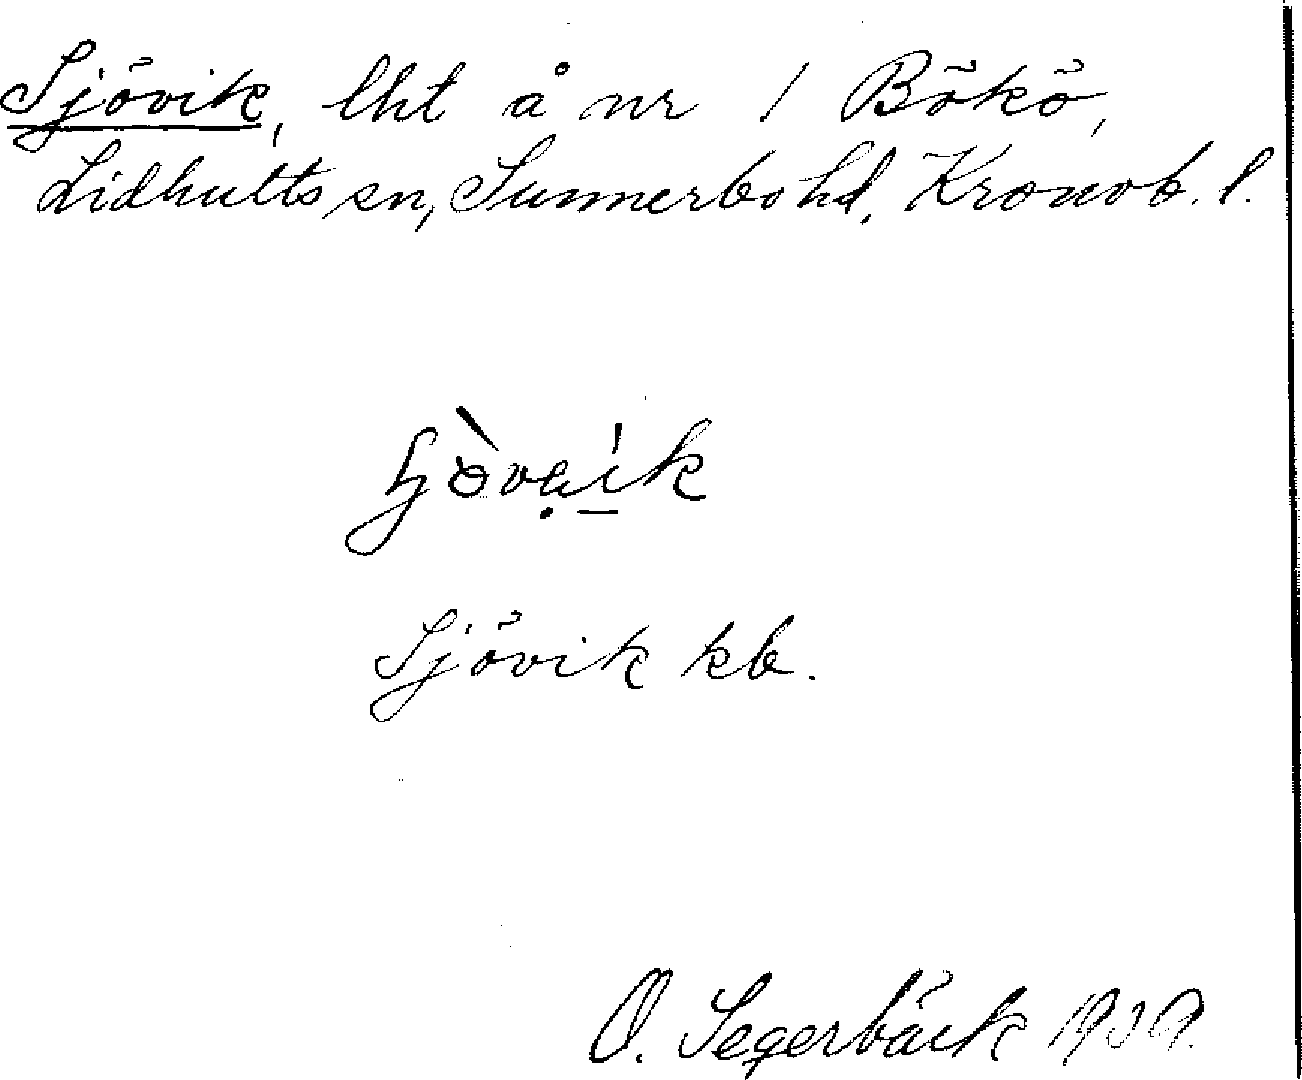 Sjövik, lht å nr 1 Bökö,
Lidhults sn, Sunnerbo hd, Kronob. l.
Sjövik kb.
O. Segerbäck 1939.